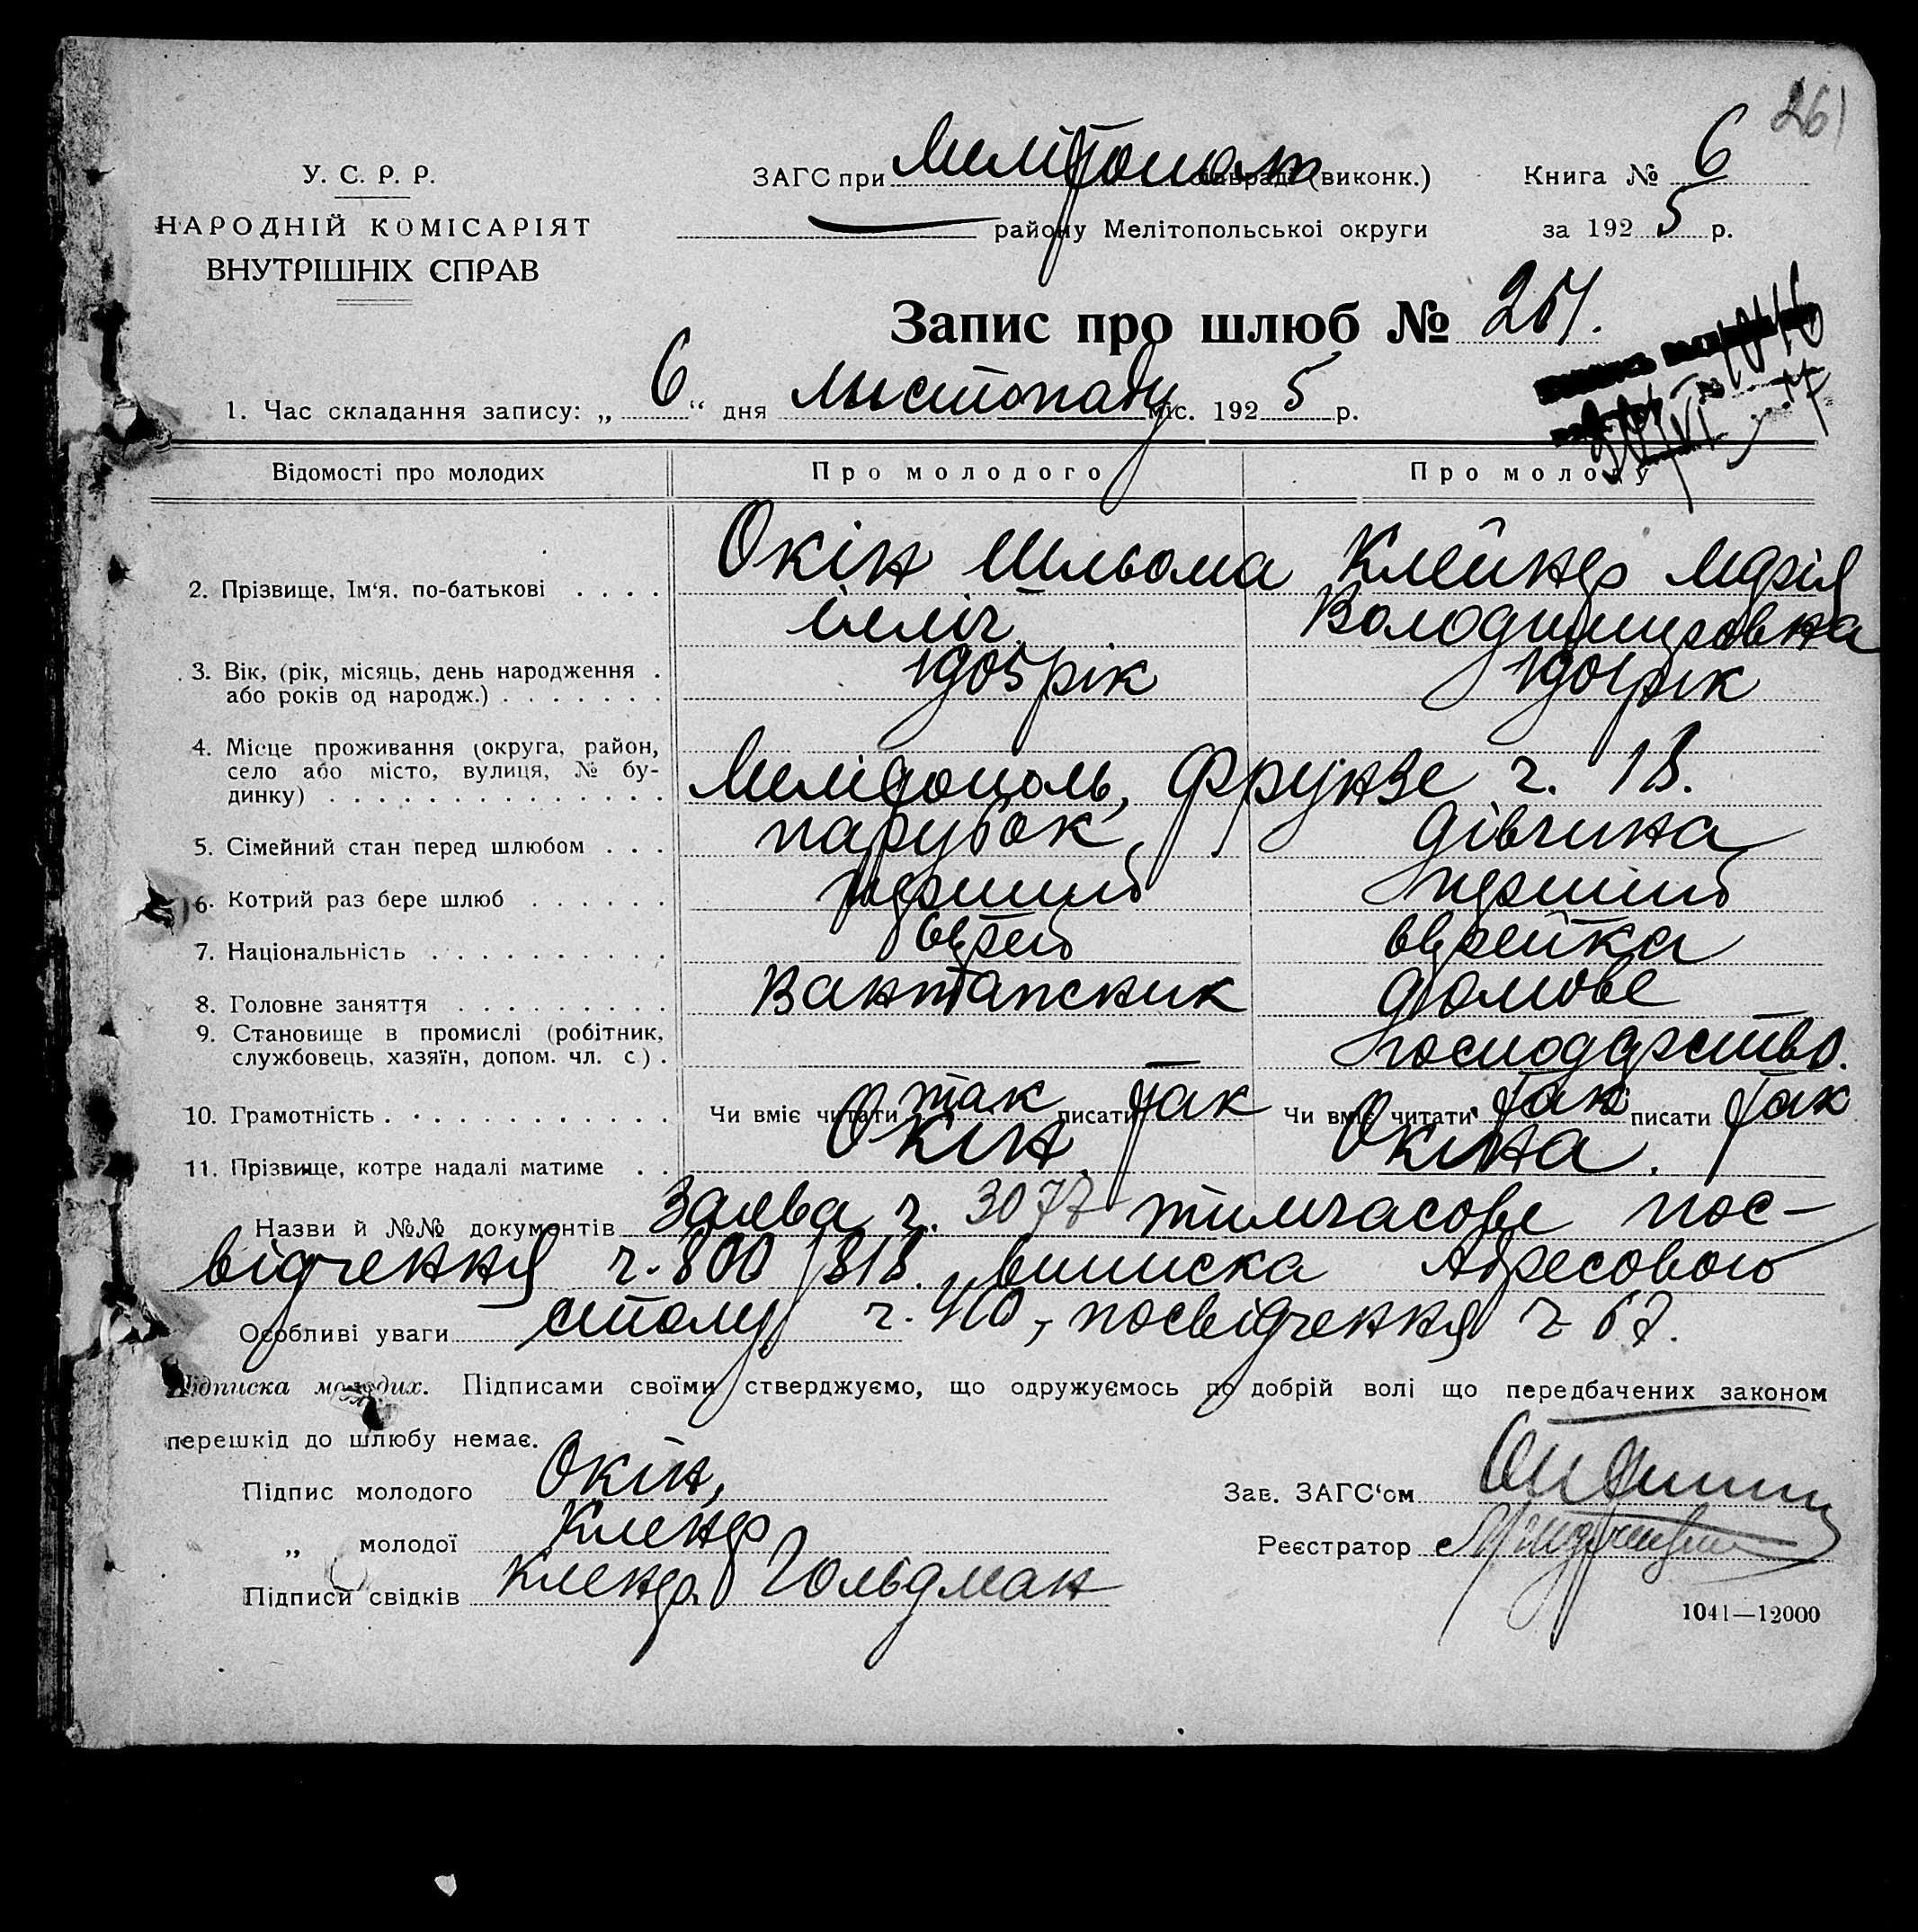 261
У. С. Р. Р.
НАРОДНІЙ КОМІСАРІЯТ
ВНУТРІШНІХ СПРАВ
ЗАГС при (виконк.)
Книга № 6
району Мелітопольської округи
за 1925 р.
Запис про шлюб №
1. Час складання запису: „6“ дня листопаду міс. 1925 р.
Відомості про молодих Про молодого Про молоду
2. Прізвище, Ім‘я, по-батькові Окін Шльома Клейнер Марія
Ілліч Володимировна
3. Вік, (рік, місяць, день народження
або років од народж.) 1905 рік 1904 рік
4. Місце проживання (округа, район,
село або місто, вулиця, № бу-
динку) Мелітополь, Фрунзе ч. 13.
5. Сімейний стан перед шлюбом парубок дівчина
6. Котрий раз бере шлюб перший перший
7. Національність еврей еврейка
8. Головне заняття домове
9. Становище в промислі (робітник,
службовець, хазяїн, допом. чл. с.) господарство.
10. Грамотність Чи вміє читати так писати так Чи вміє читати так писати так
11. Прізвище, котре надалі матиме Окін Окіна.
Назви й №№ документів Заява ч. 3077 тимчасове пос-
відчення ч. виписка Адресового
Особливі уваги столу ч. посвідчення ч 67.
Підписка молодих. Підписами своїми стверджуємо, що одружуємось по добрій волі що передбачених законом
перешкід до шлюбу немає.
Підпис молодого Окін,
„ молодої Кленер
Підписи свідків Кленер Гольдман
Зав. ЗАГС‘ом
Реєстратор
1041—12000